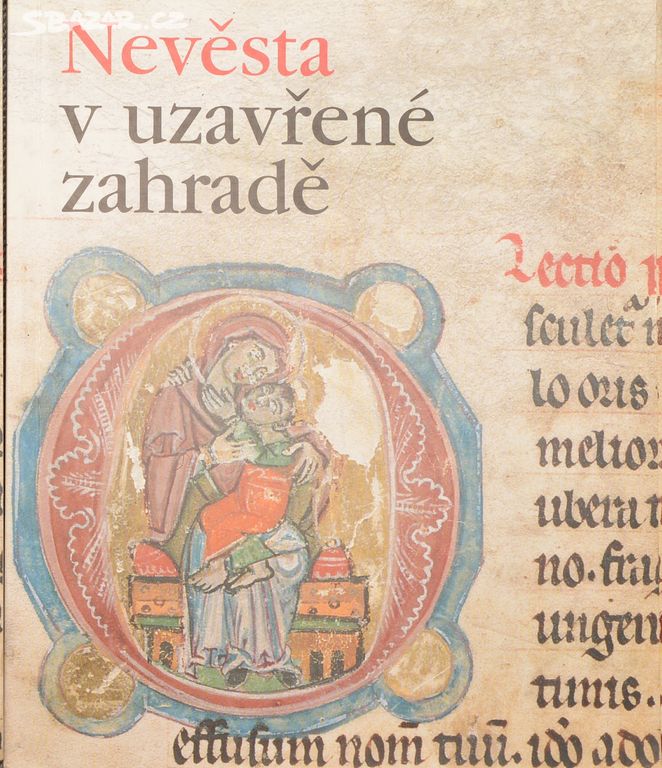 SBAZAR.CZ
Nevěsta
v uzavřené
zahradě
Lectio p
lo oris
melior
ubera
no. frag
ungen
tunis.
effusum nom̄ tuū. idō ado